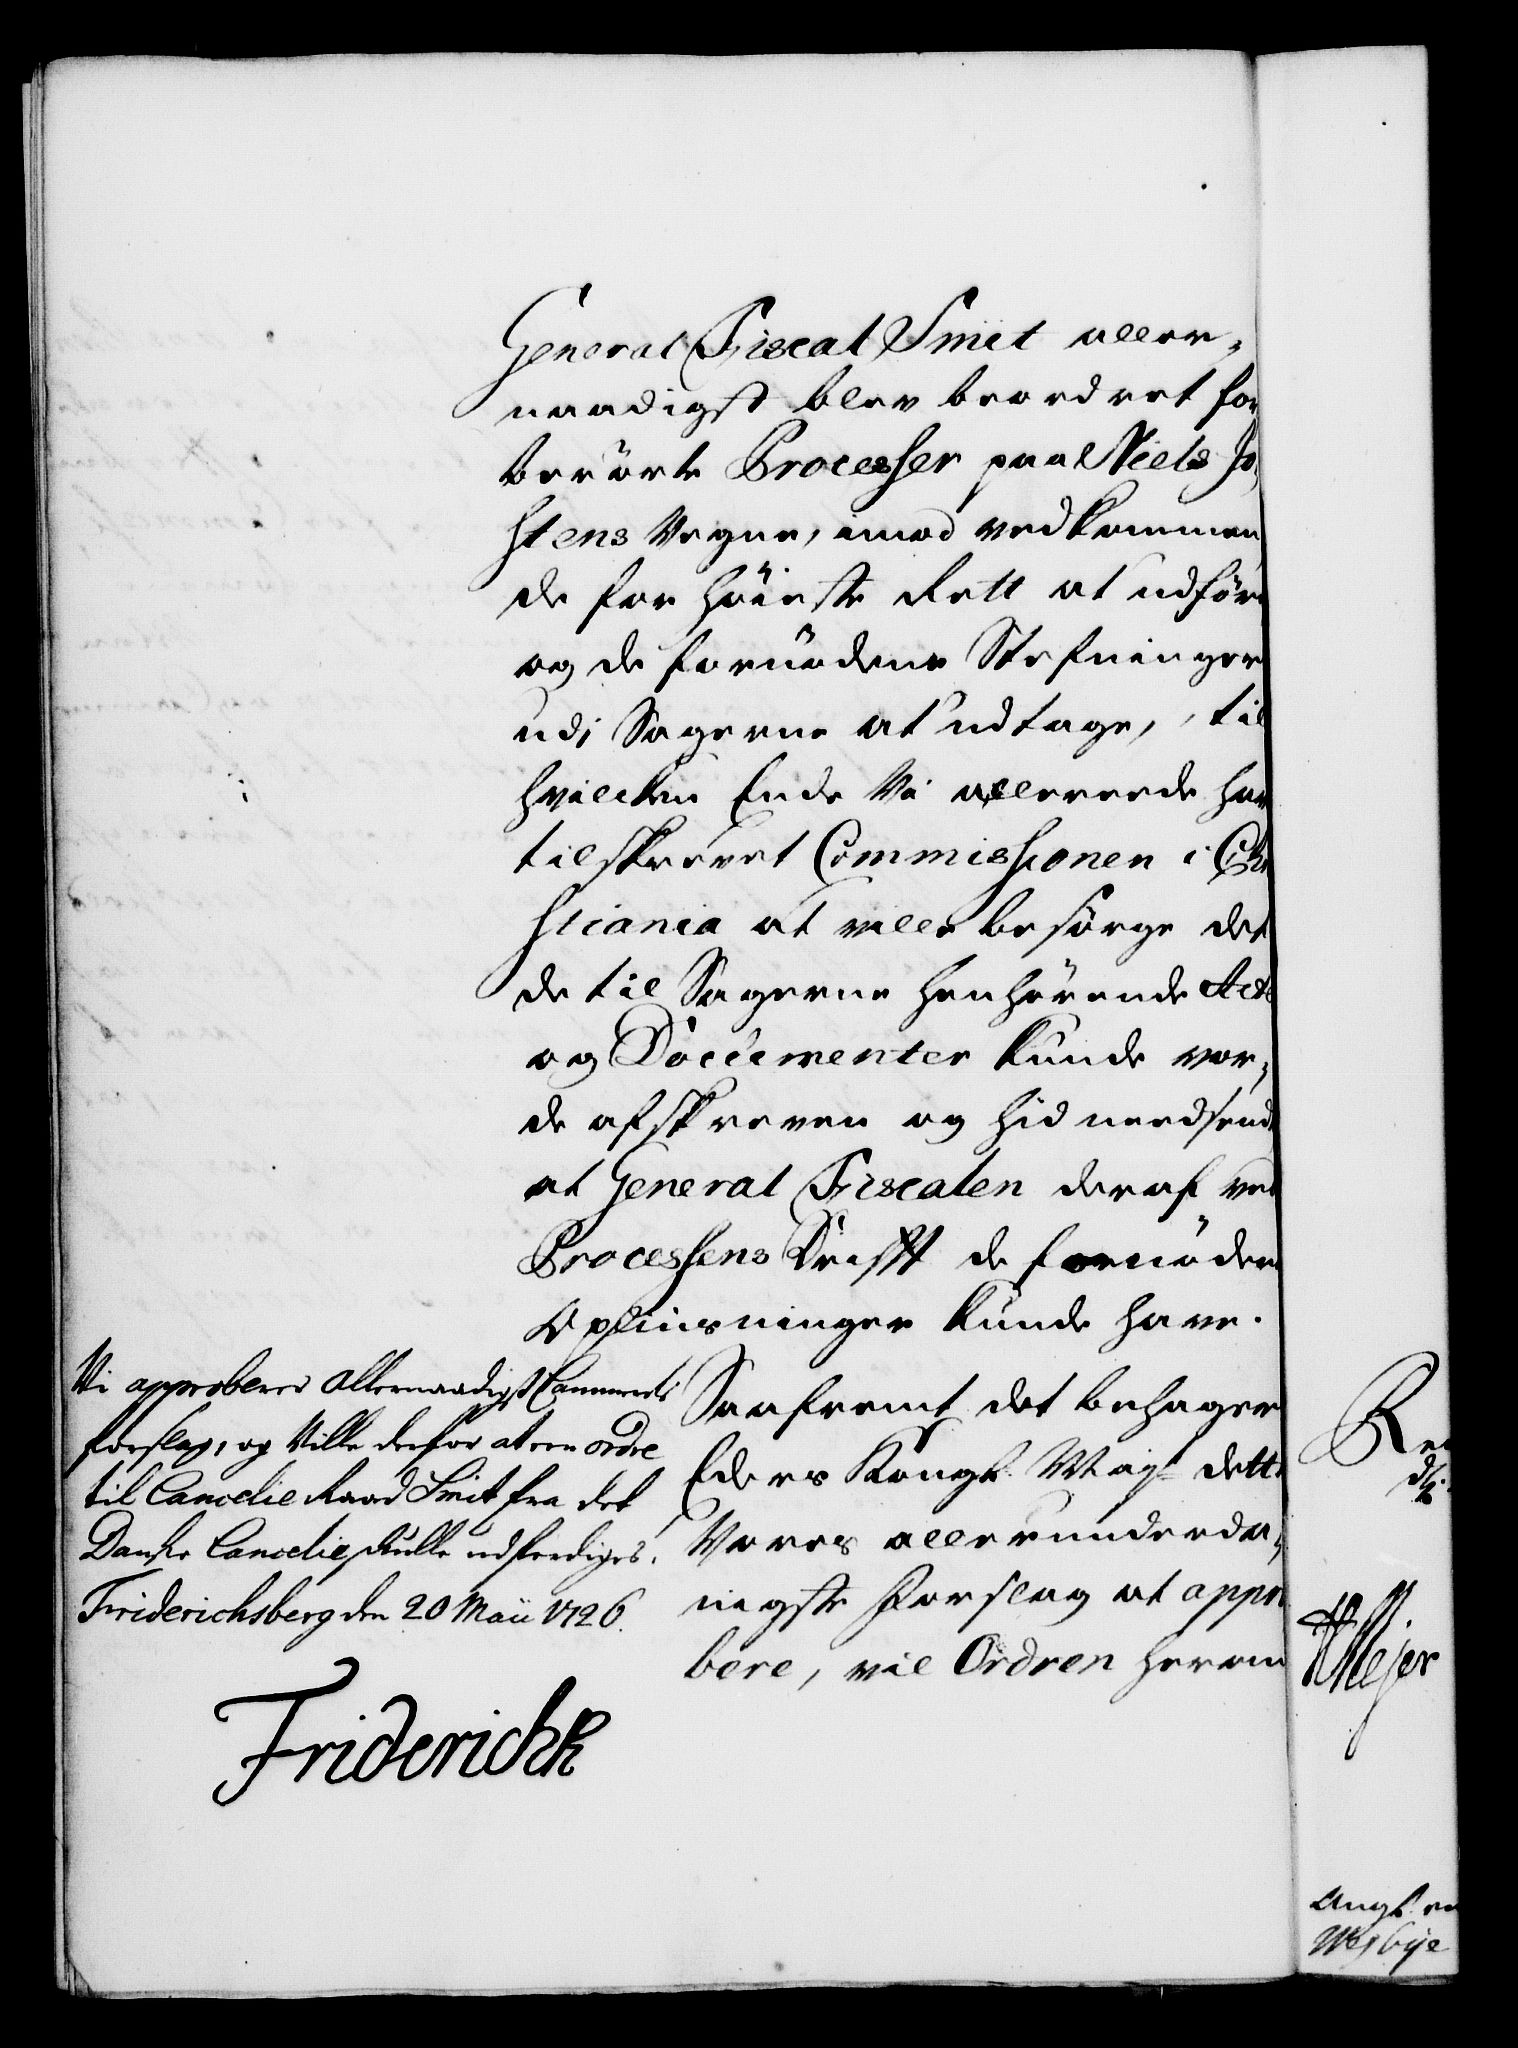 General Fiscal Smit aller-
naadigst blev beordret for
berörte Processer paa Niels Jo
stens Vegne, imod vedkommen
de for höieste Rett at udföre
og de fornödene Stefninger
udi Sagerne at udtage, til
hvilcken Ende Vi allereede har
tilskrevet Commissionen i Chri
stiania at ville besörge det
de til Sagerne henhörende Acter
og Documenter kunde vor-
de afskreven og hid needsendt
at General Fiscalen deraf ved
Processens Drifft de fornöden
Oplüsninger kunde have.
Saafremt det behager
Eders Kongl. Mayt. dette
Vores allerunderda-
nigste Forslag at appro
bere, vil Ordren herom
Vi approberer allernaadigst Cammerets
forslag, og Ville derfor at een ordre
til Cancelie Raad Smit fra det
Danske Cancelie skulle udferdiges.
Friderichsberg den 20 Maii 1726.
Friderich R
Ren
Meyer
Angl. en
Wesbye